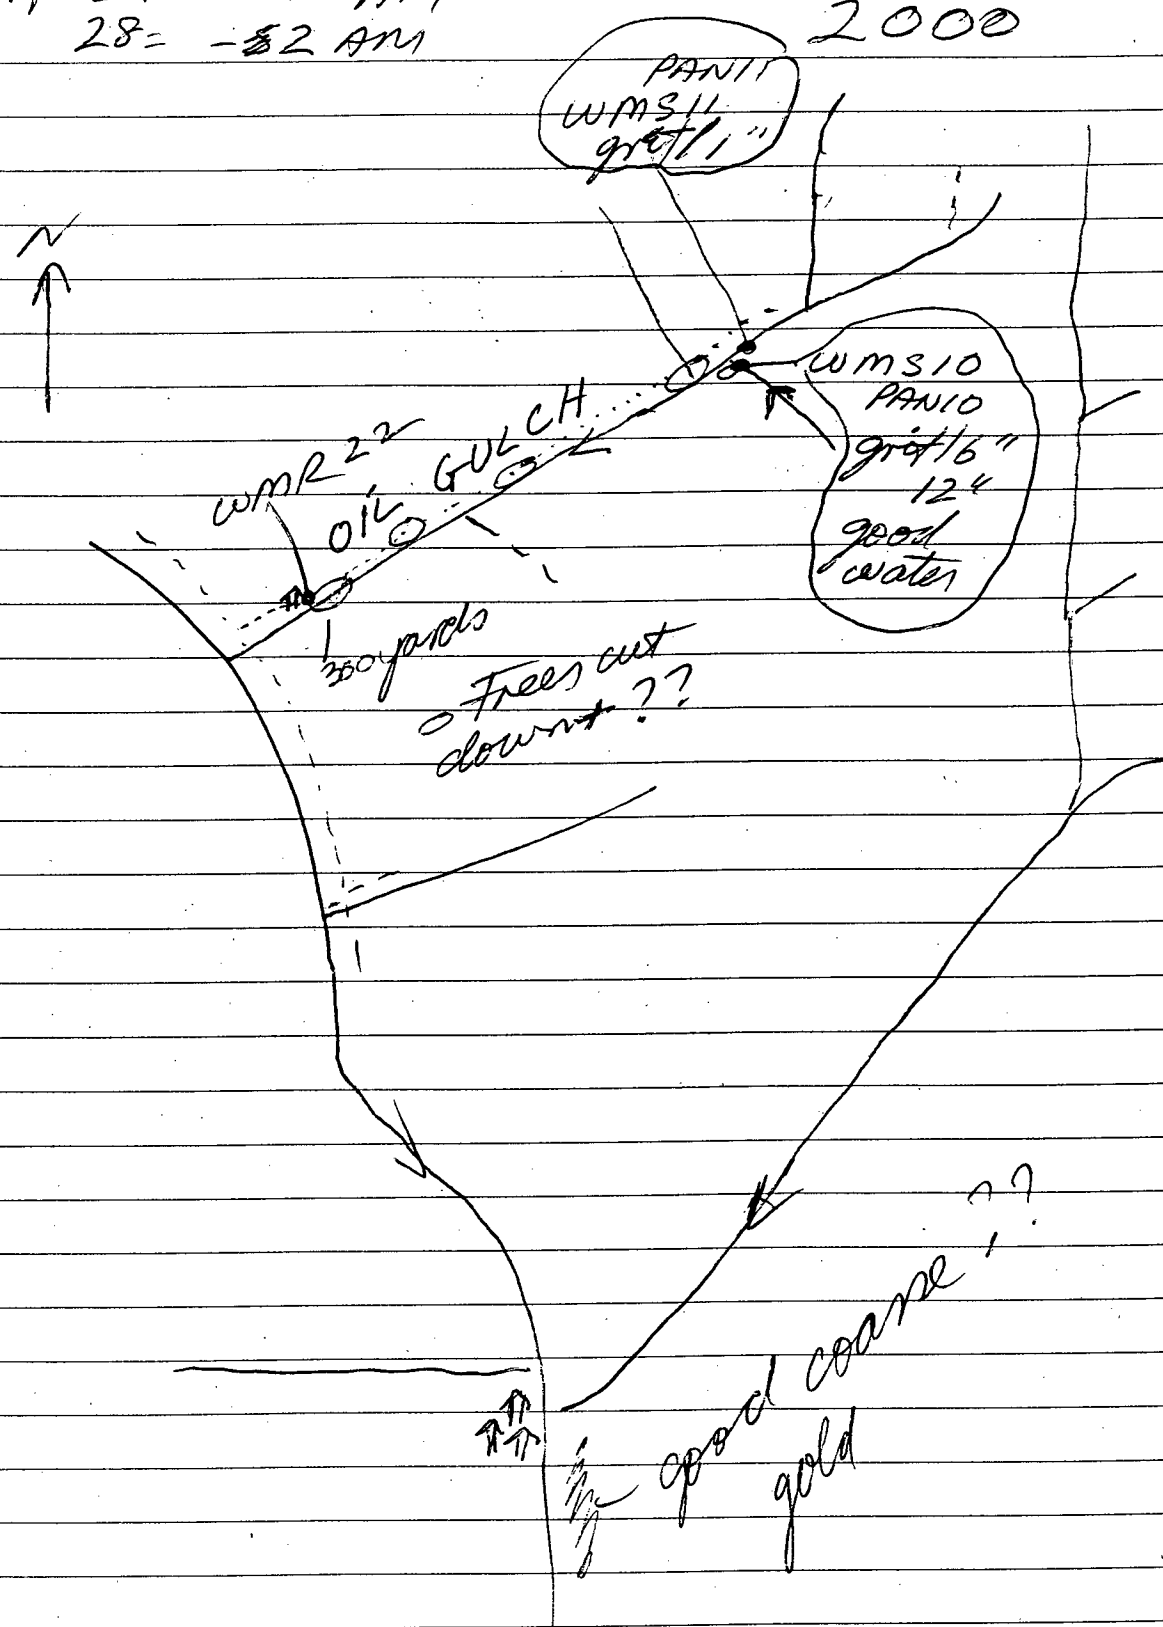 28= -52 AM
2000
PAN11
WMS11
grit/1"
N
WMS10
PAN10
grit/6"
12"
good
water
WMR22
OIL GULCH
300 yards
Trees cut
down ??
good coarse ??
gold